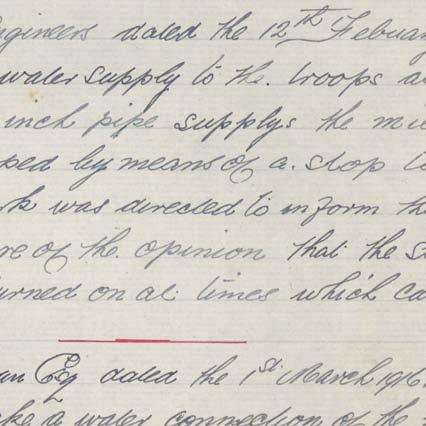 ngineers dated the 12th Febuary
water supply to the troops a
inch pipe supplys the mu
ked by means of a stop
rk was directed to inform the
re of the opinion that the s
urned on al times which ca
an Esq dated the 1st March 1916.
ake a water connection of the